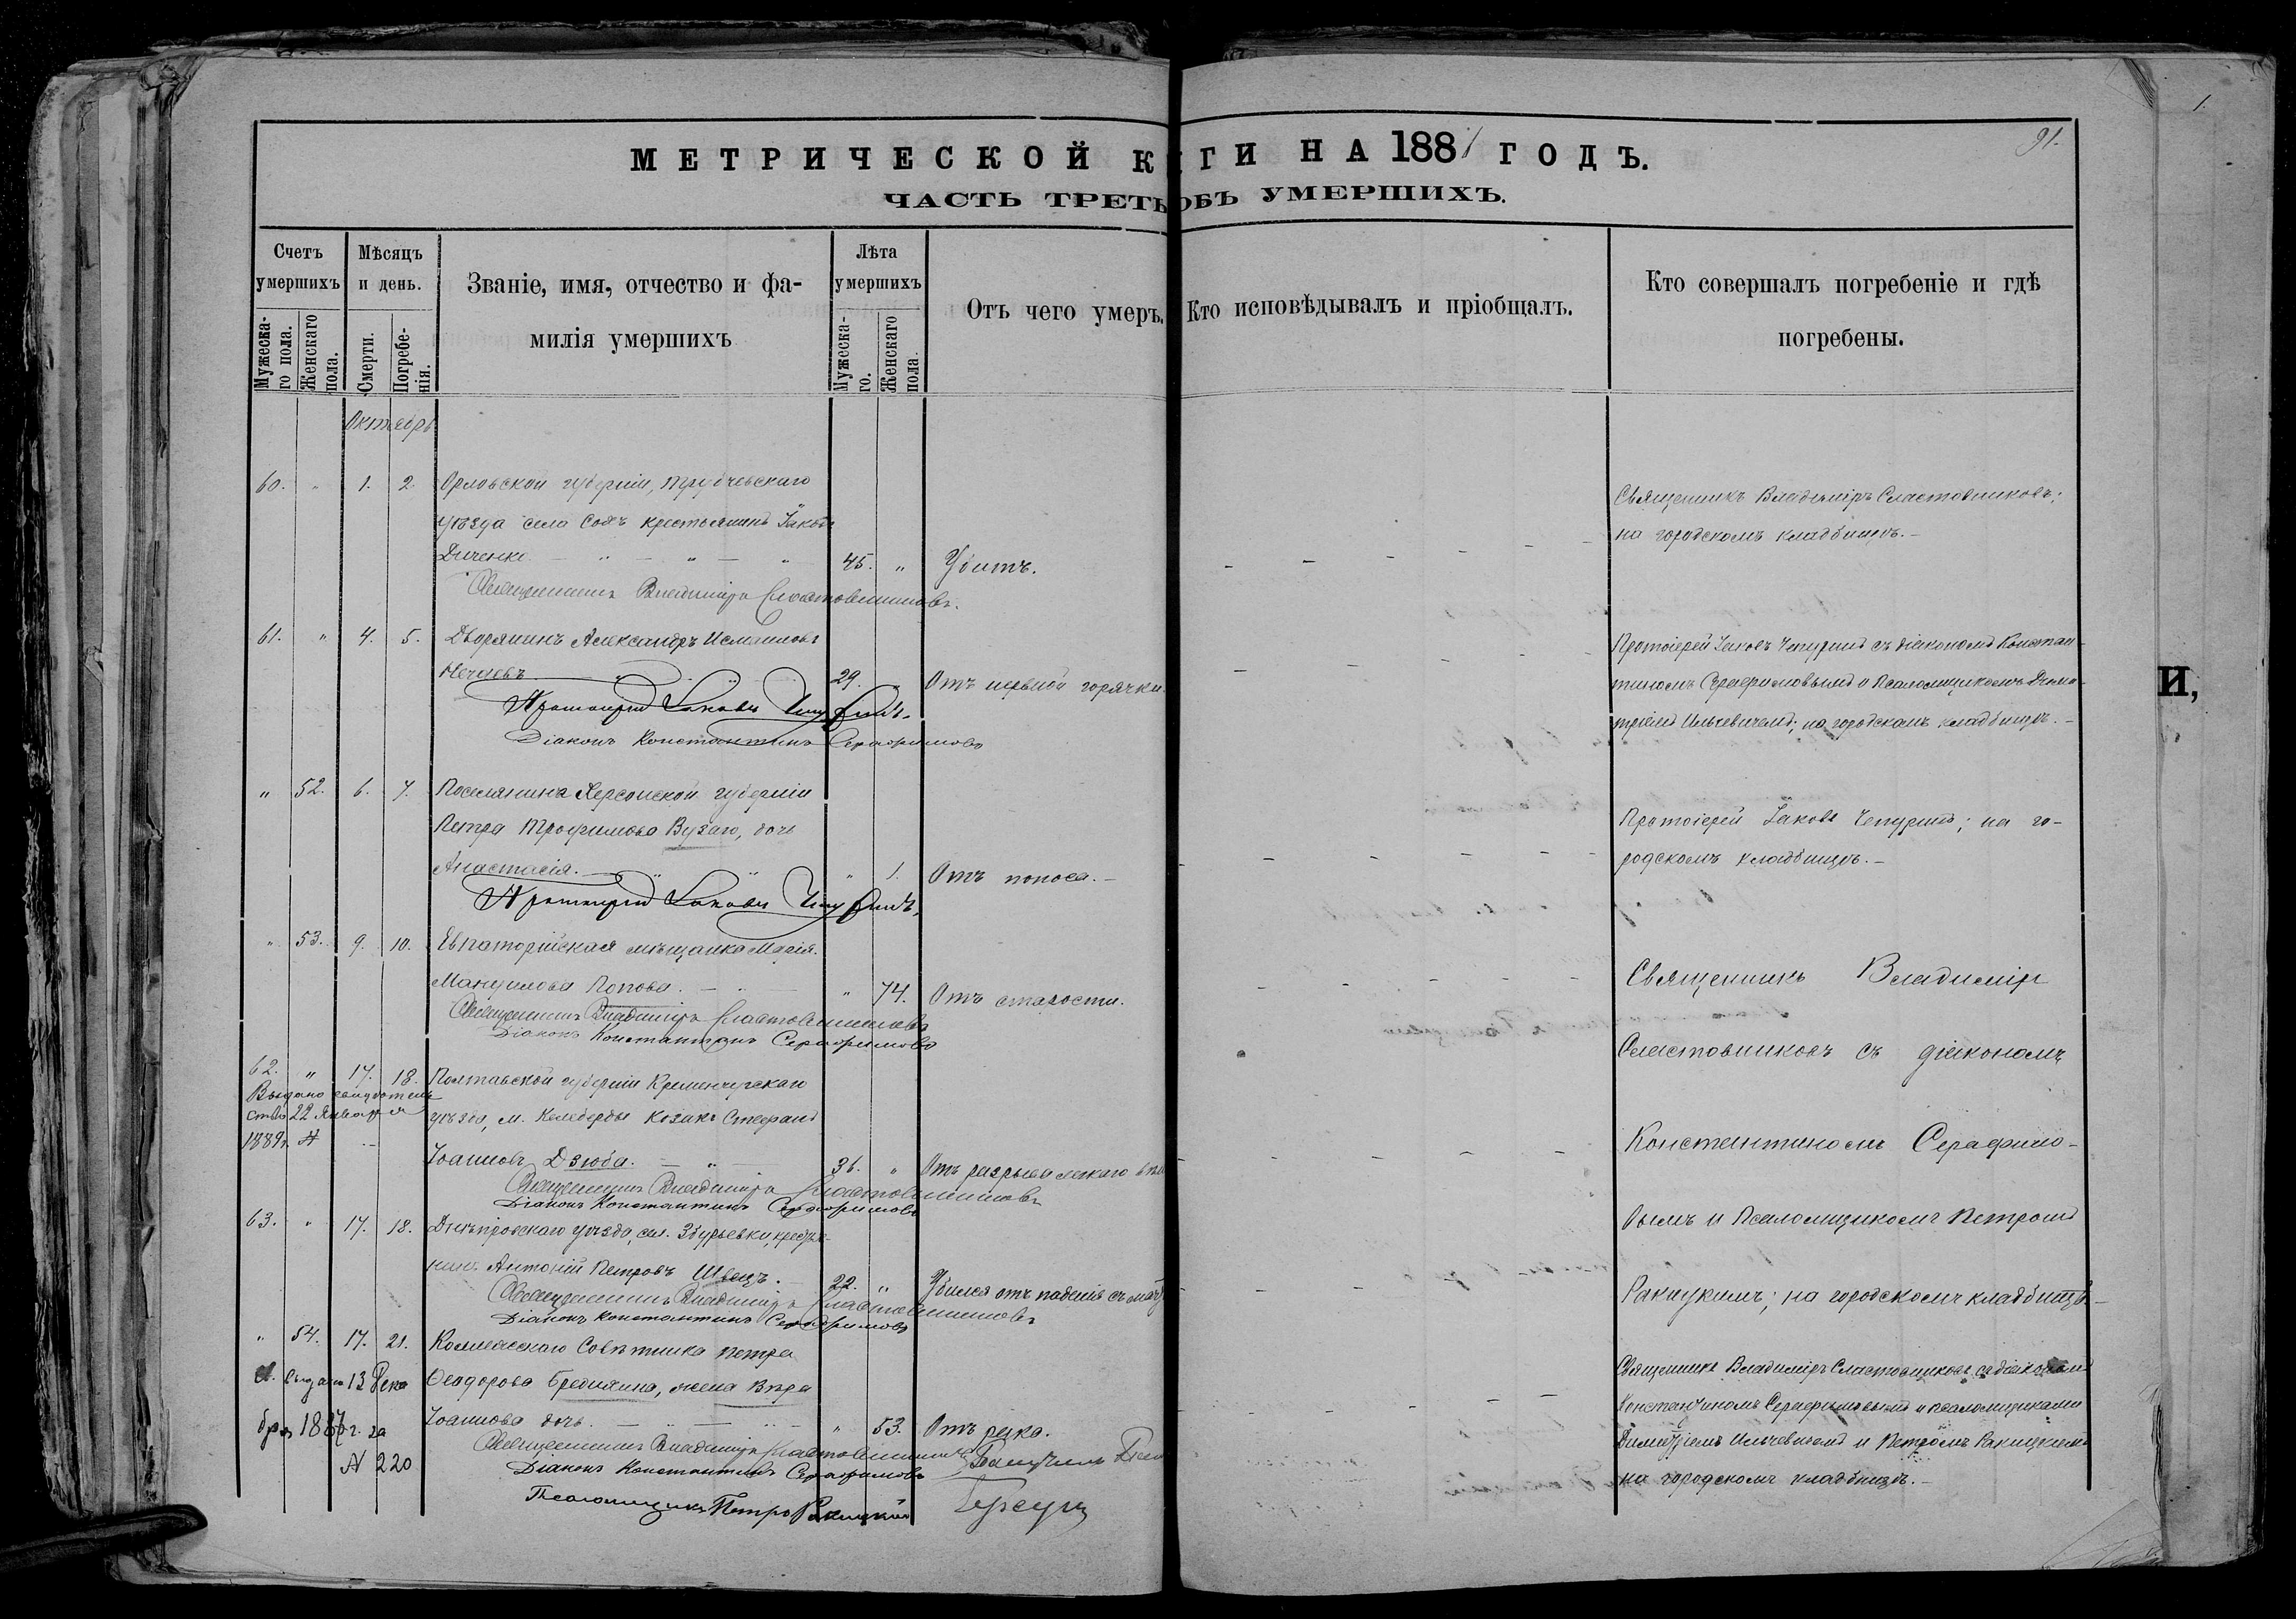 МЕТРИЧЕСКОЙ К ГИ НА 1881 ГОДЪ.
91.
1.
ЧАСТЬ ТРЕТЬ ОБЪ УМЕРШИХЪ.
Счетъ умершихъ
Мужеска-го пола.
Женскаго пола.
Мѣсяцъ и день.
Смерти.
Погребе-нія.
Званіе, имя, отчество и фа-
милія умершихъ
Лѣта умершихъ
Мужеска-го.
Женскаго пола.
Отъ чего умеръ.
Кто исповѣдывалъ и пріобщалъ.
Кто совершалъ погребеніе и гдѣ
погребены.
Октябрь
60. " 1. 2. Орловской губерніи, Трубчевскаго
уѣзда села крестьянинъ Іаковъ
Диченко 45. " Убитъ.
Священникъ Владиміръ Сластовниковъ;
на городскомъ кладбищѣ.
Священникъ Владиміръ Сластовниковъ.
61. " 4. 5. Дворянинъ Александръ Исмаиловъ
Нечаевъ 29. " Отъ нервной горячки.
Протоіерей Іаковъ Чепуринъ съ діакономъ Констан-
тиномъ Серафимовымъ и Псаломщикомъ Дими-
тріемъ Ильчевичемъ; на городскомъ кладбищѣ.
Протоіерей Іаковъ Чепуринъ.
Діаконъ Константинъ Серафимовъ
" 52. 6. 7. Поселянина Херсонской губерніи
Петра Трофимова Бузаго, дочь
Анастасія. " 1. Отъ поноса.
Протоіерей Іаковъ Чепуринъ; на го-
родскомъ кладбищѣ.
Протоіерей Іаковъ Чепуринъ.
" 53. 9. 10. Евпаторійская мѣщанка Марія
Мануилова Попова. " 74. Отъ старости.
Священникъ Владиміръ Сластовниковъ
Діаконъ Константинъ Серафимовъ
Священникъ Владиміръ
Сластовниковъ съ діакономъ
Константиномъ Серафимо-
вымъ и Псаломщикомъ Петромъ
Ракицкимъ; на городскомъ кладбищѣ.
62. " 17. 18. Полтавской губерніи Кременчугскаго
Выдано свидѣтель
ство 22 Января
1889г. №
уѣзда, м. Келеберды козакъ Стефанъ
Іоанновъ Дзюба. 36. " Отъ разрыва легкаго
Священникъ Владиміръ Сластовниковъ
Діаконъ Константинъ Серафимовъ
63. " 17. 18. Днѣпровскаго уѣзда, сел. Збурьевки, крестья-
нинъ Антоній Петровъ Швецъ. 22. " Убился отъ паденія съ мач
Священникъ Владиміръ Сластовниковъ
Діаконъ Константинъ Серафимовъ
" 54. 17. 21. Коллежскаго Совѣтника Петра
Ѳеодорова Бредихина, жена Вѣра
Іоаннова дочь. " 53. Отъ рака.
выдано 13 Дека
бря 1887г. за
№ 220
Священникъ Владиміръ Сластовниковъ съ діакономъ
Константиномъ Серафимовымъ и псаломщиками
Димитріемъ Ильчевичемъ и Петромъ Ракицкимъ
на городскомъ кладбищѣ.
Священникъ Владиміръ Сластовниковъ
Діаконъ Константинъ Серафимовъ
Псаломщикъ Петръ Ракицкій
И,